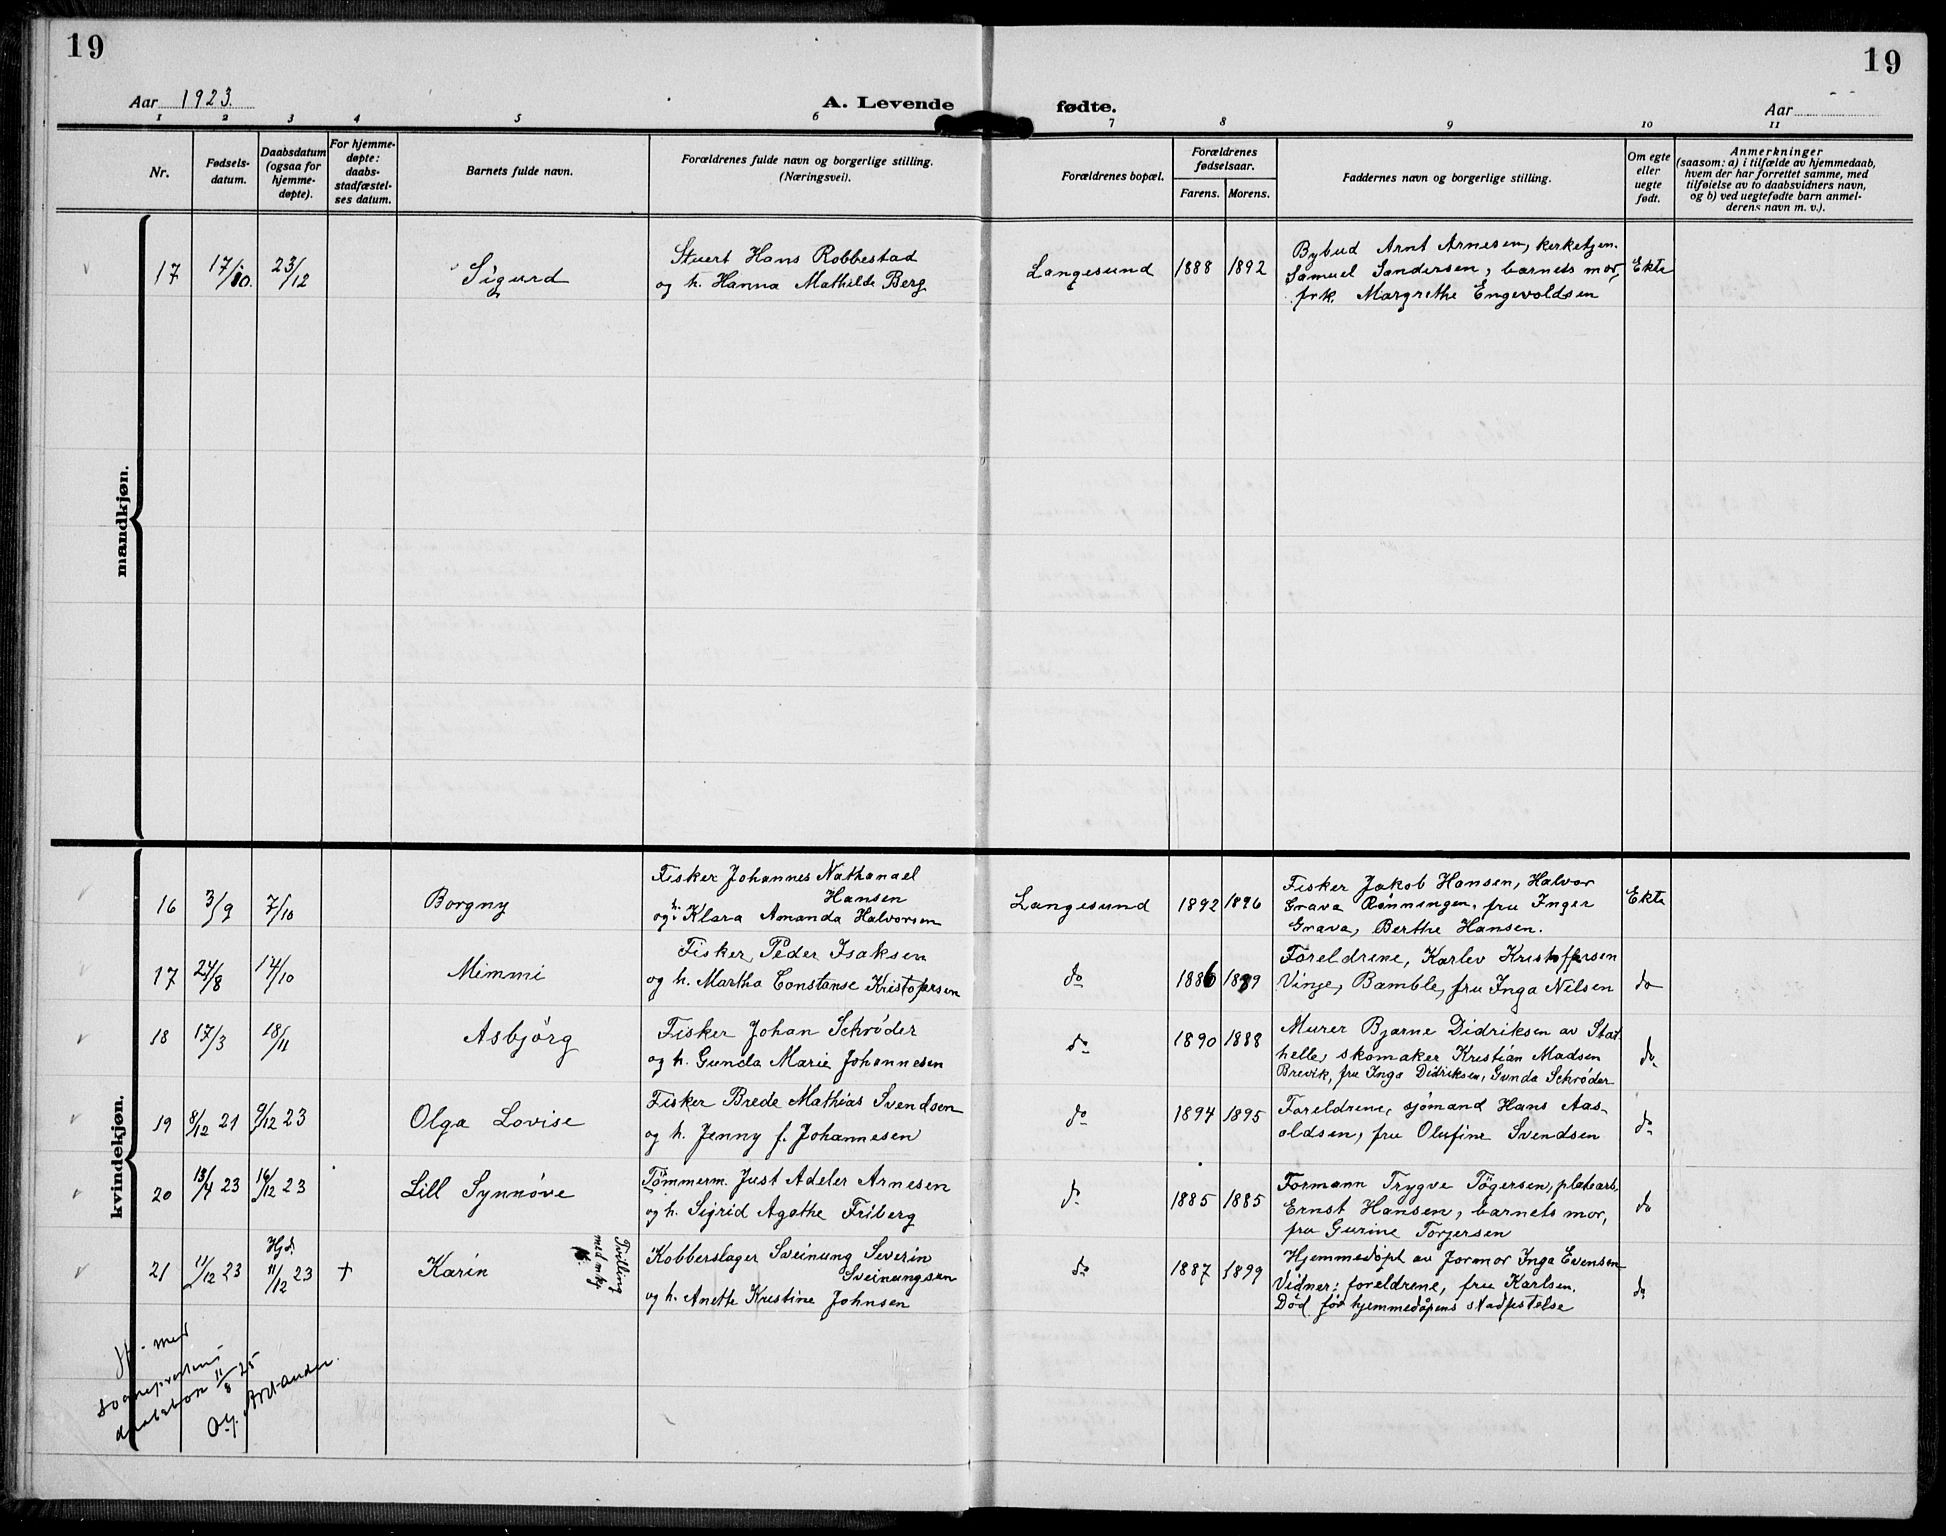 19
19
Aar 1923.
A. Levende fødte.
Aar
1 2 3 4 5 6 7 8 9 10 11
Nr.
Fødsels-
datum.
Daabsdatum
(ogsaa for
hjemme-
døpte).
For hjemme-
døpte:
daabs-
stadfæstel-
ses datum.
Barnets fulde navn.
Forældrenes fulde navn og borgerlige stilling.
(Næringsvei).
Forældrenes bopæl.
Forældrenes
fødselsaar.
Farens. Morens.
Faddernes navn og borgerlige stilling.
Om egte
eller
uegte
født.
Anmerkninger
(saasom: a) i tilfælde av hjemmedaab,
hvem der har forrettet samme, med
tilføielse av to daabsvidners navn,
og b) ved uegtefødte barn anmel-
derens navn m. v.).
mandkjøn.
17 17/10. 23/12 Sigurd
Stuert Hans Robbestad
og h. Hanna Mathilde Berg
Langesund 1888 1892
Bybud Arnt Arnesen, kerketjen.
Samuel Sandersen, barnets mor,
frk. Margrethe Engevoldsen
Ekte
kvindekjøn.
16 3/9 7/10 Borgny
Fisker Johannes Nathanael
Hansen
og h. Klara Amanda Halvorsen
Langesund 1892 1896
Fisker Jakob Hansen, Halvor
Grava Rönningen, fru Inger
Grava, Berthe Hansen.
Ekte
17 27/8 14/10 Mimmi
Fisker Peder Isaksen
og h. Martha Constanse Kristofersen
do 1886 1889
Foreldrene, Karlev Kristoffersen
Vinje, Bamble, fru Inga Nilsen
do
18 17/3 18/11 Asbjörg
Fisker Johan Schrøder
og h. Gunda Marie Johannesen
do 1890 1888
Murer Bjarne Didriksen av Stat
helle, skomaker Kristian Madsen
Brevik, fru Inga Didriksen, Gunda Schrøder
do
19 8/12 21 9/12 23 Olga Lovise
Fisker Brede Mathias Svendsen
og h. Jenny f. Johannesen
do 1894 1895
Foreldrene, sjömand Hans Aas-
oldsen, fru Olufine Svendsen
do
20 13/4 23 16/12 23 Lill Synnöve
Tömmerm. Just Adeler Arnesen
og h. Sigrid Agathe Friberg
do 1885 1885
Formann Trygve Tögersen, platearb.
Ernst Hansen, barnets mor,
fru Gurine Torjersen
do
21 11/12 23 Hjd. 11/12 23 + Karin
Tvilling
Kobberslager Sveinung Severin
Sveinungsen
og h. Anette Kristine Johnsen
do 1887 1899
Hjemmedöpt av Jormor Inga Evensen
Vidner: foreldrene, fru Karlsen.
Död før hjemmedåpens stadfestelse
do